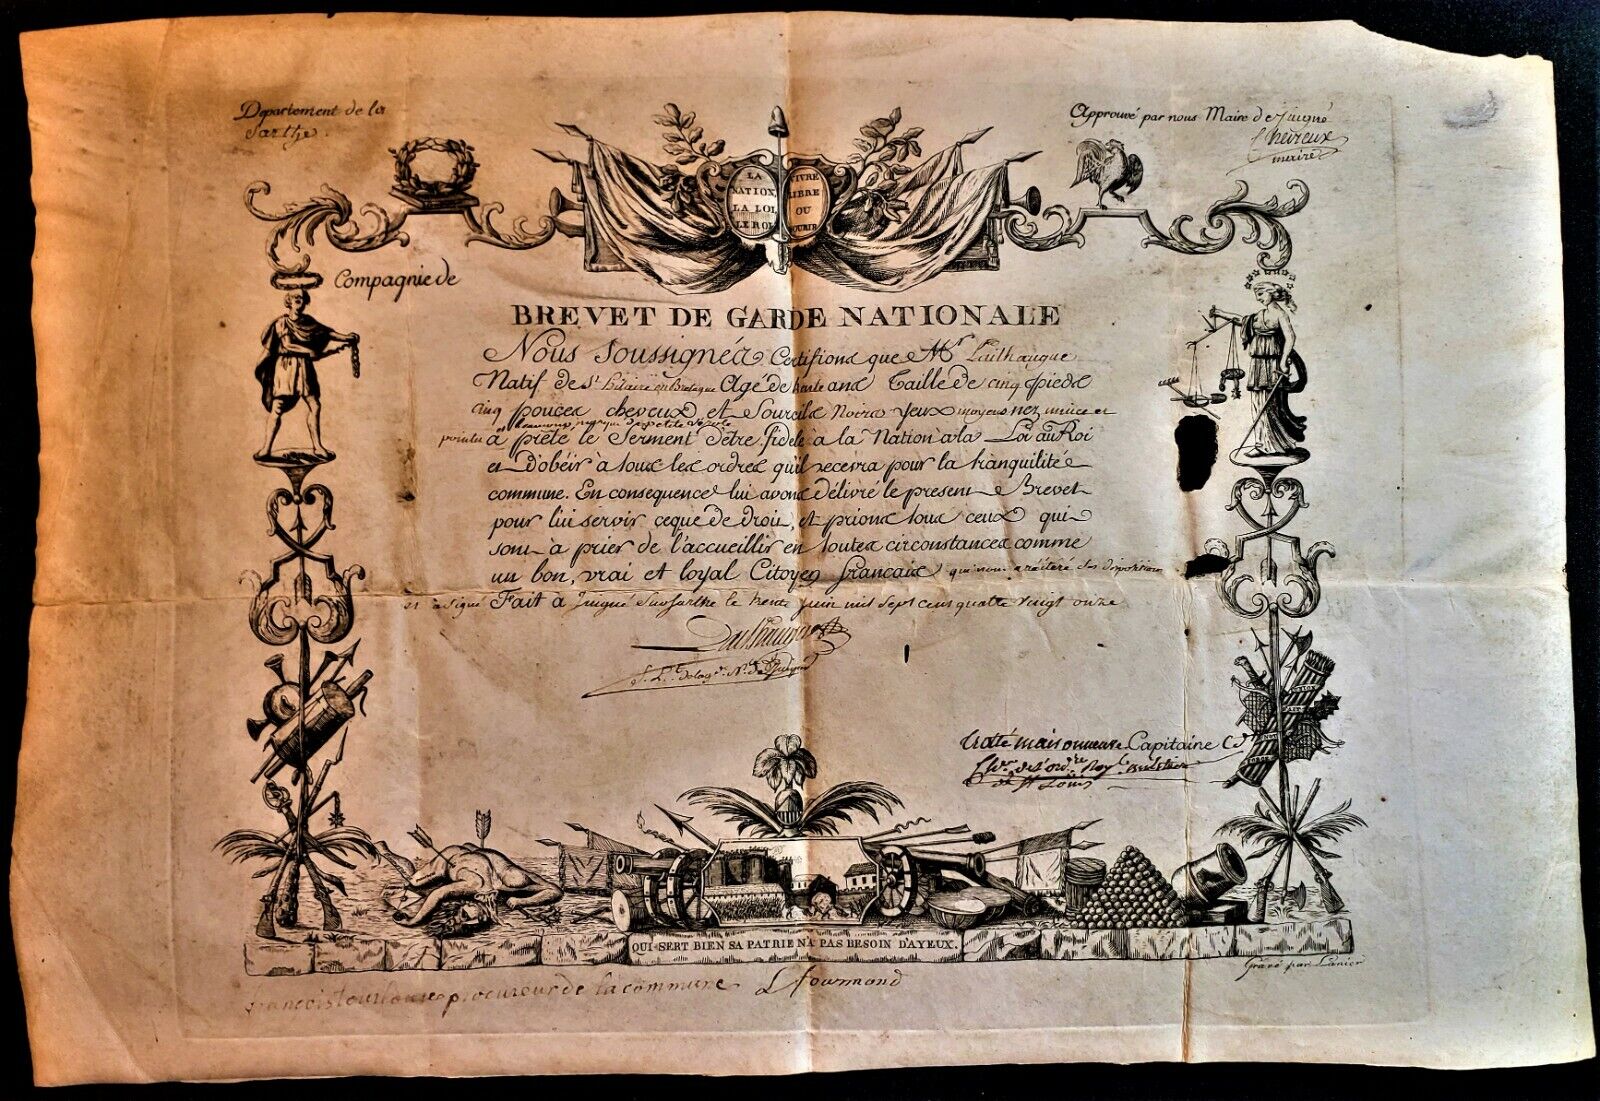 Departement de la
Sarthe
Approuvé par nous Maire de Juigné
Chevreux
maire
LA
NATION
LA LOI
LE ROI
VIVRE
LIBRE
OU
MOURIR
Compagnie de
BREVET DE GARDE NATIONALE
Nous Soussignés Certifions que Mr
Natif de St hilaire en Bretagne Agé de trente ans Taille de cinq pieds
cinq pouces cheveux et Sourcils Noirs yeux moyens nez mince et
beaucoup marqué de petite Vérole
pointu à prêté le Serment d'etre fidele à la Nation à la Loi au Roi
et D'obéir à tous les ordres qu'il recevra pour la tranquilité
commune. En consequence lui avons délivré le present Brevet
pour lui servir ce que de droit, et prions tous ceux qui
sont à prier de l'accueillir en toutes circonstances comme
un bon, vrai et loyal Citoyen francais qui nous a réitéré ses dispositions
et a signé Fait à Juigné Sur Sarthe le trente juin mil sept cens quatre vingt onze
maisonneuve Capitaine
de St Louis
QUI SERT BIEN SA PATRIE N'A PAS BESOIN D'AYEUX.
Gravé par Lanier
francois procureur de la commune L fourmond